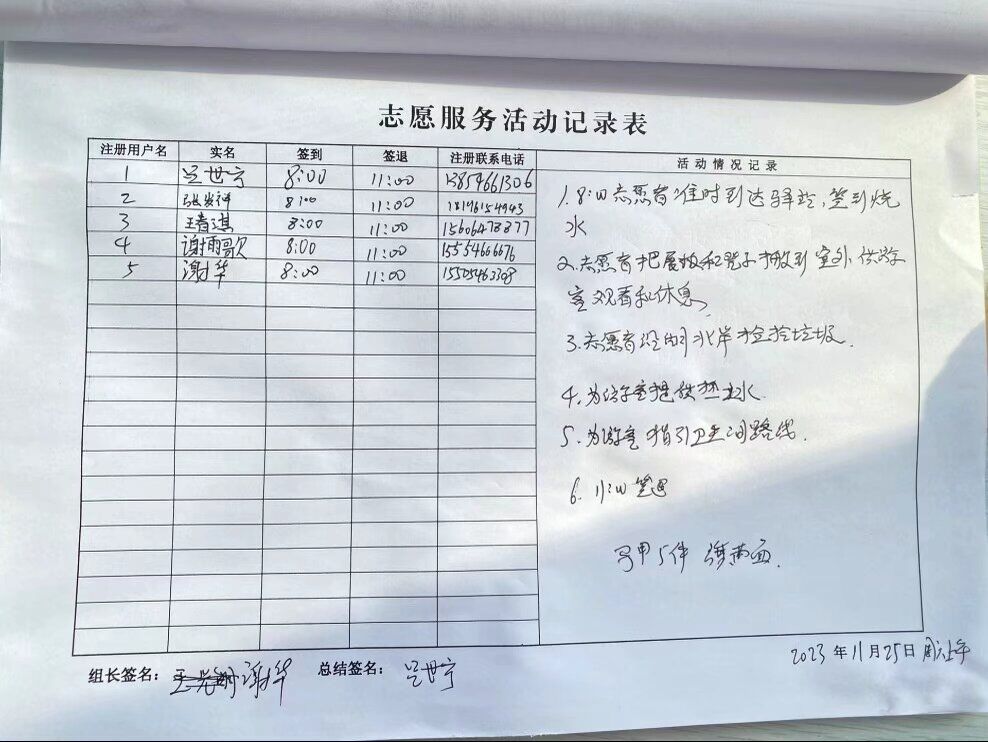 志愿服务活动记录表
注册用户名 实名 签到 签退 注册联系电话 活动情况记录
1 吕世宁 8:00 11:00 13854661306
2 8:00 11:00 18176154943
3 8:00 11:00 15606478877
4 谢雨歌 8:00 11:00 15554666676
5 谢华 8:00 11:00 15505463308
1. 8:00志愿者准时到达驿站,签到烧
水
2.志愿者把展板和凳子搬到室外,供游
客观看和休息
3.志愿者沿河北岸捡拾垃圾.
4.为游客提供热水.
5.为游客指引卫生间路线.
6. 11:00签退
马甲5件
组长签名: 谢华 总结签名: 吕世宁
2023年11月25日 周六上午